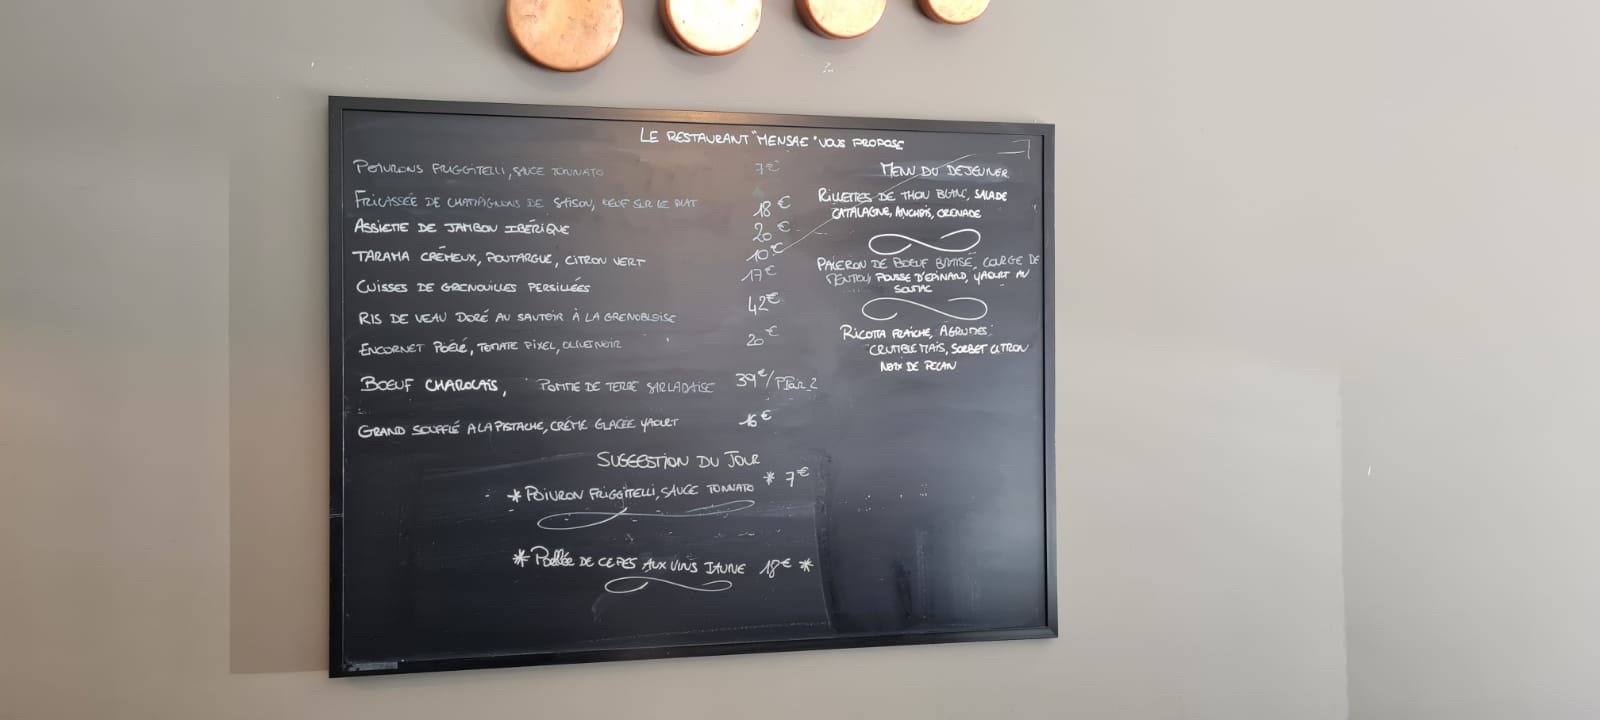 LE RESTAURANT "MENSAE" VOUS PROPOSE
POIVRONS FRIGGITELLI, SAUCE TONNATO 7€
FRICASSÉE DE CHAMPIGNONS DE SAISON, OEUF SUR LE PLAT 18€
ASSIETTE DE JAMBON IBÉRIQUE 20€
TARAMA CRÉMEUX, POUTARGUE, CITRON VERT 10€
CUISSES DE GRENOUILLES PERSILLÉES 17€
RIS DE VEAU DORÉ AU SAUTOIR À LA GRENOBLOISE 42€
ENCORNET POÊLÉ, TOMATE PIXEL, OLIVE NOIR 20€
BOEUF CHAROLAIS, POMME DE TERRE SARLADAISE 39€/P Par 2
GRAND SOUFFLÉ A LA PISTACHE, CRÉME GLACÉE YAOURT 16€
SUGGESTION DU JOUR
* POIVRON FRIGGITELLI, SAUCE TONNATO * 7€
* POELLÉE DE CEPES AUX VINS JAUNE 18€ *
MENU DU DEJEUNER
RILLETTES DE THON BLANC, SALADE
CATALAGNE, ANCHOIS, GRENADE
PALERON DE BOEUF BRAISÉ, COURGE DE
MENTON, POUSSE D'EPINARD, YAOURT AU
SUMAC
RICOTTA FRAICHE, AGRUMES,
CRUMBLE MAÏS, SORBET CITRON
NOIX DE PECAN